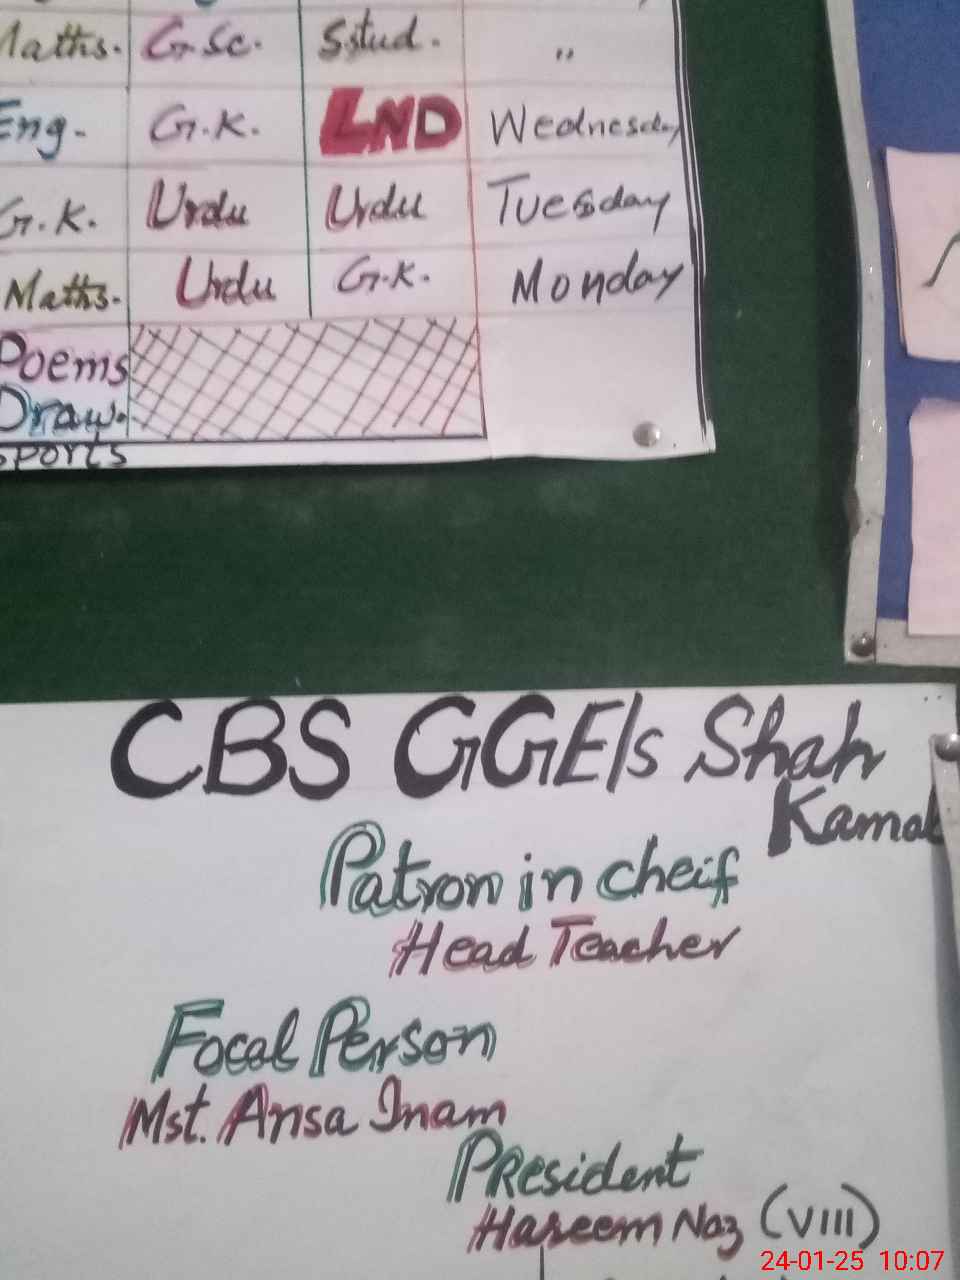 Maths. G.Sc. S.stud. "
Eng. G.K. LND Wednesday
G.K. Urdu Urdu Tuesday
Maths. Urdu G.K. Monday
Poems
Draw.
Sports
CBS GGE/s Shah
Kamal
Patron in cheif
Head Teacher
Focal Person
Mst. Ansa Inam
President
Hareem Naz (VIII)
24-01-25 10:07